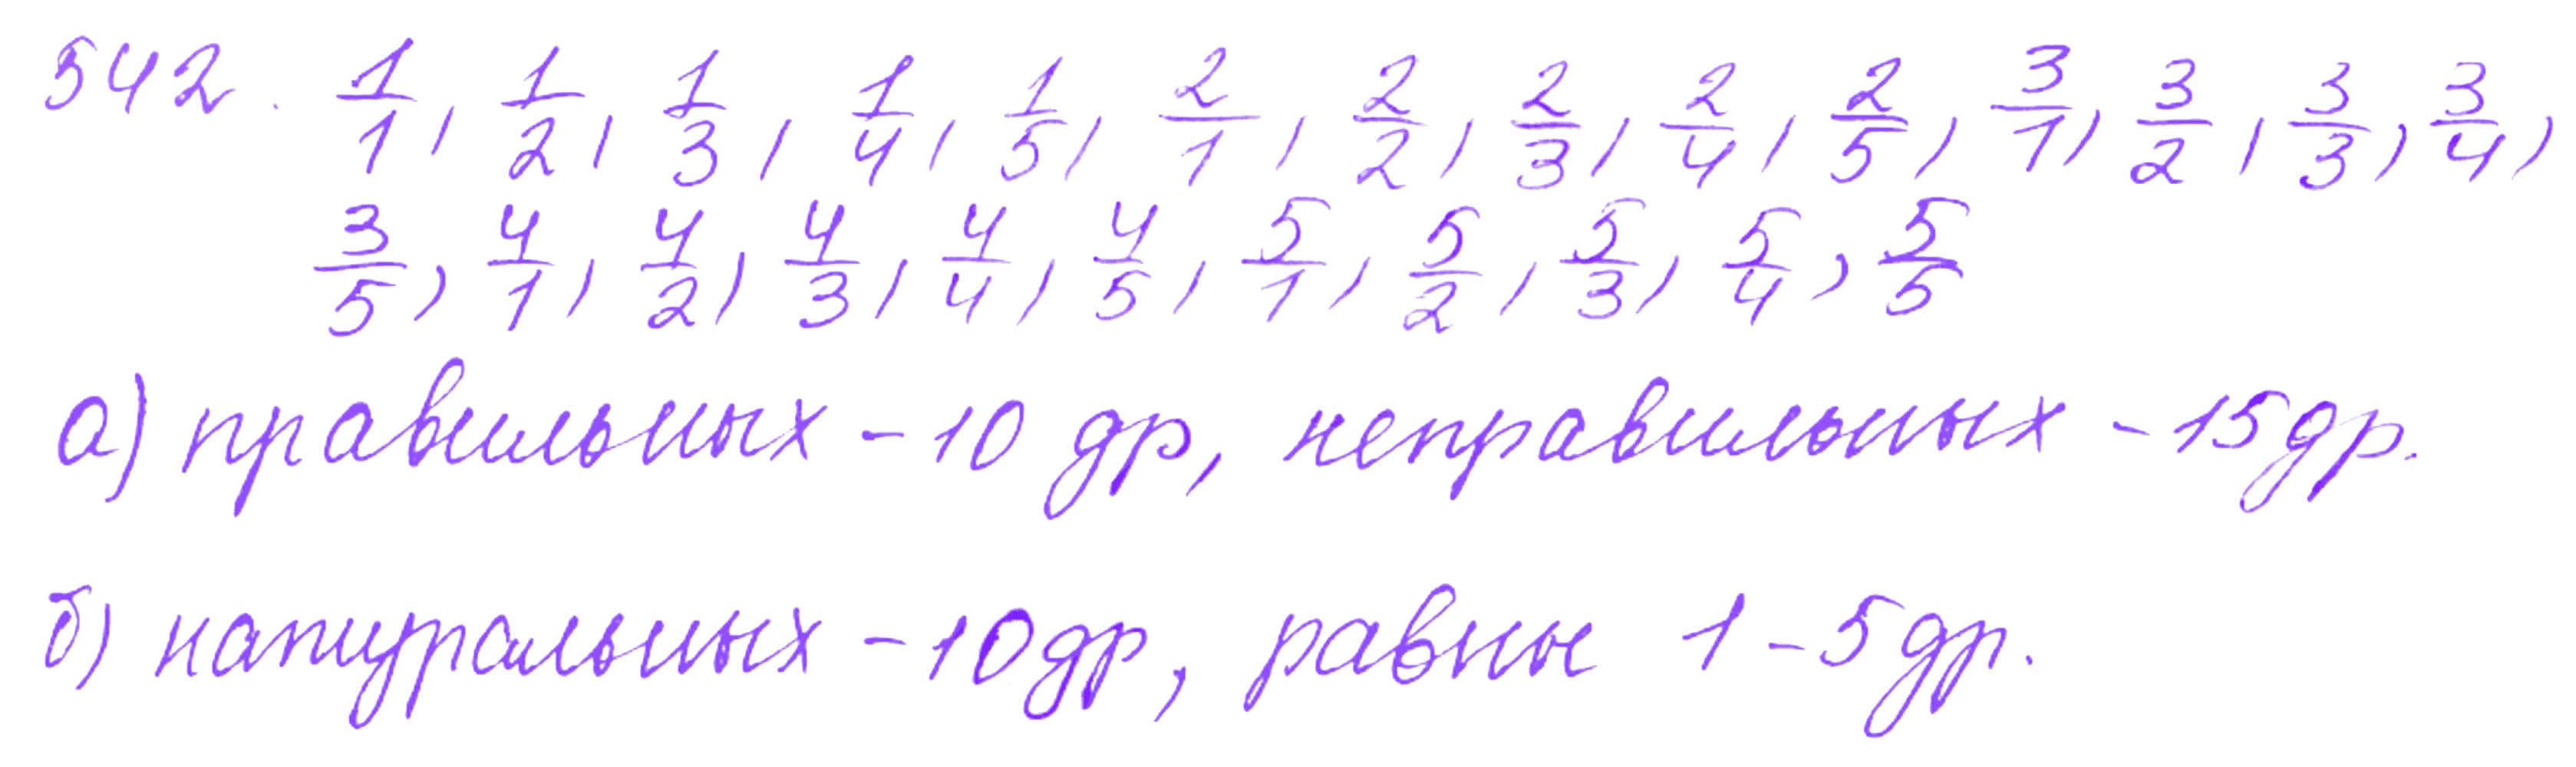 542. 1/1, 1/2, 1/3, 1/4, 1/5, 2/1, 2/2, 2/3, 2/4, 2/5, 3/1, 3/2, 3/3, 3/4,
3/5, 4/1, 4/2, 4/3, 4/4, 4/5, 5/1, 5/2, 5/3, 5/4, 5/5
а) правильных - 10 др, неправильных - 15 др.
б) натуральных - 10 др, равны 1 - 5 др.